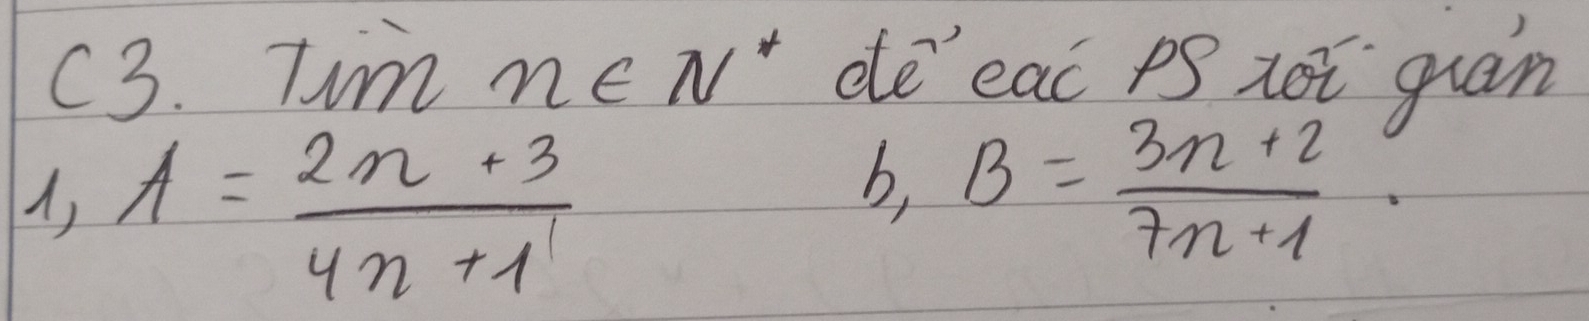 C3. Tìm n ∈ N* để các PS tối giản
1, A = \frac{2n + 3}{4n + 1} b, B = \frac{3n + 2}{7n + 1}.